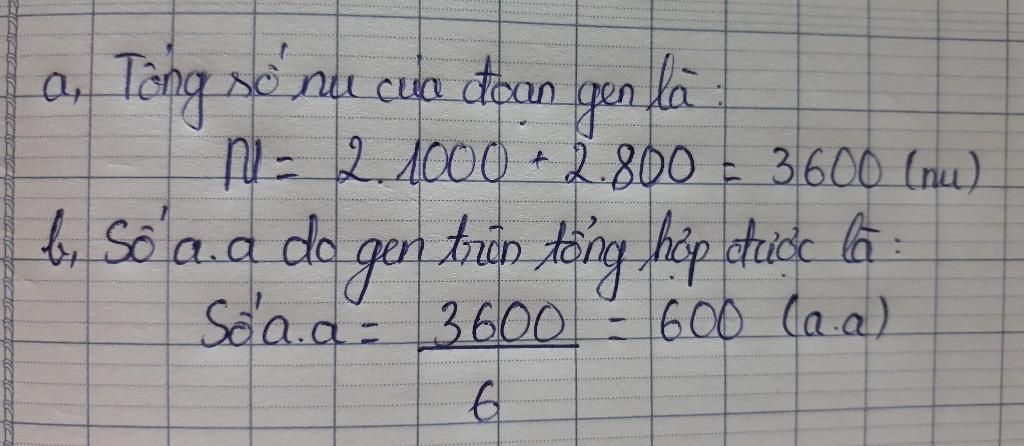 a, Tổng số nu của đoạn gen là:
N = 2.1000 + 2.800 = 3600 (nu)
b, Số a.a do gen trên tổng hợp được là:
Số a.a = 3600 = 600 (a.a)
6